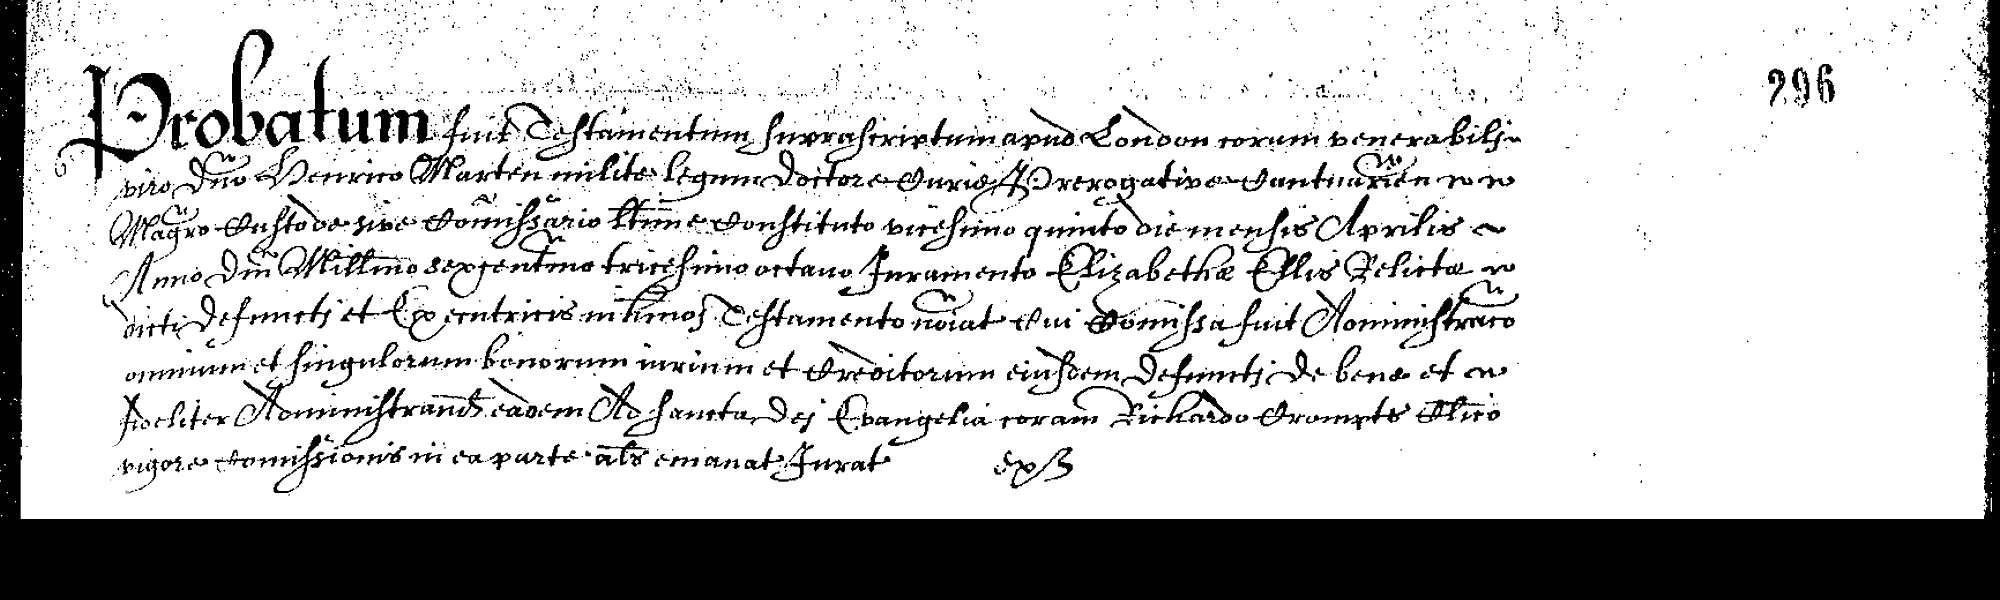 296
Probatum fuit Testamentum suprascriptum apud London coram venerabili
viro Dno Henrico Marten milite legum doctore Curie Prerogative Cantuarien
Magro Custode sive Comissario ltime Constituto vicesimo quinto die mensis Aprilis
Anno Dni Millmo sexcentmo tricesimo octavo Juramento Elizabethæ Ellis Relictæ
dicti defuncti et Executricis in hmoi Testamento noiat Cui Comissa fuit Administraco
omnium et singulorum bonorum iurium et Creditorum eiusdem defuncti de bene et
fideliter Administrand eadem Ad sancta dei Evangelia coram Richardo Crompte Clico
vigore Comissionis in ea parte als emanat Jurat ex